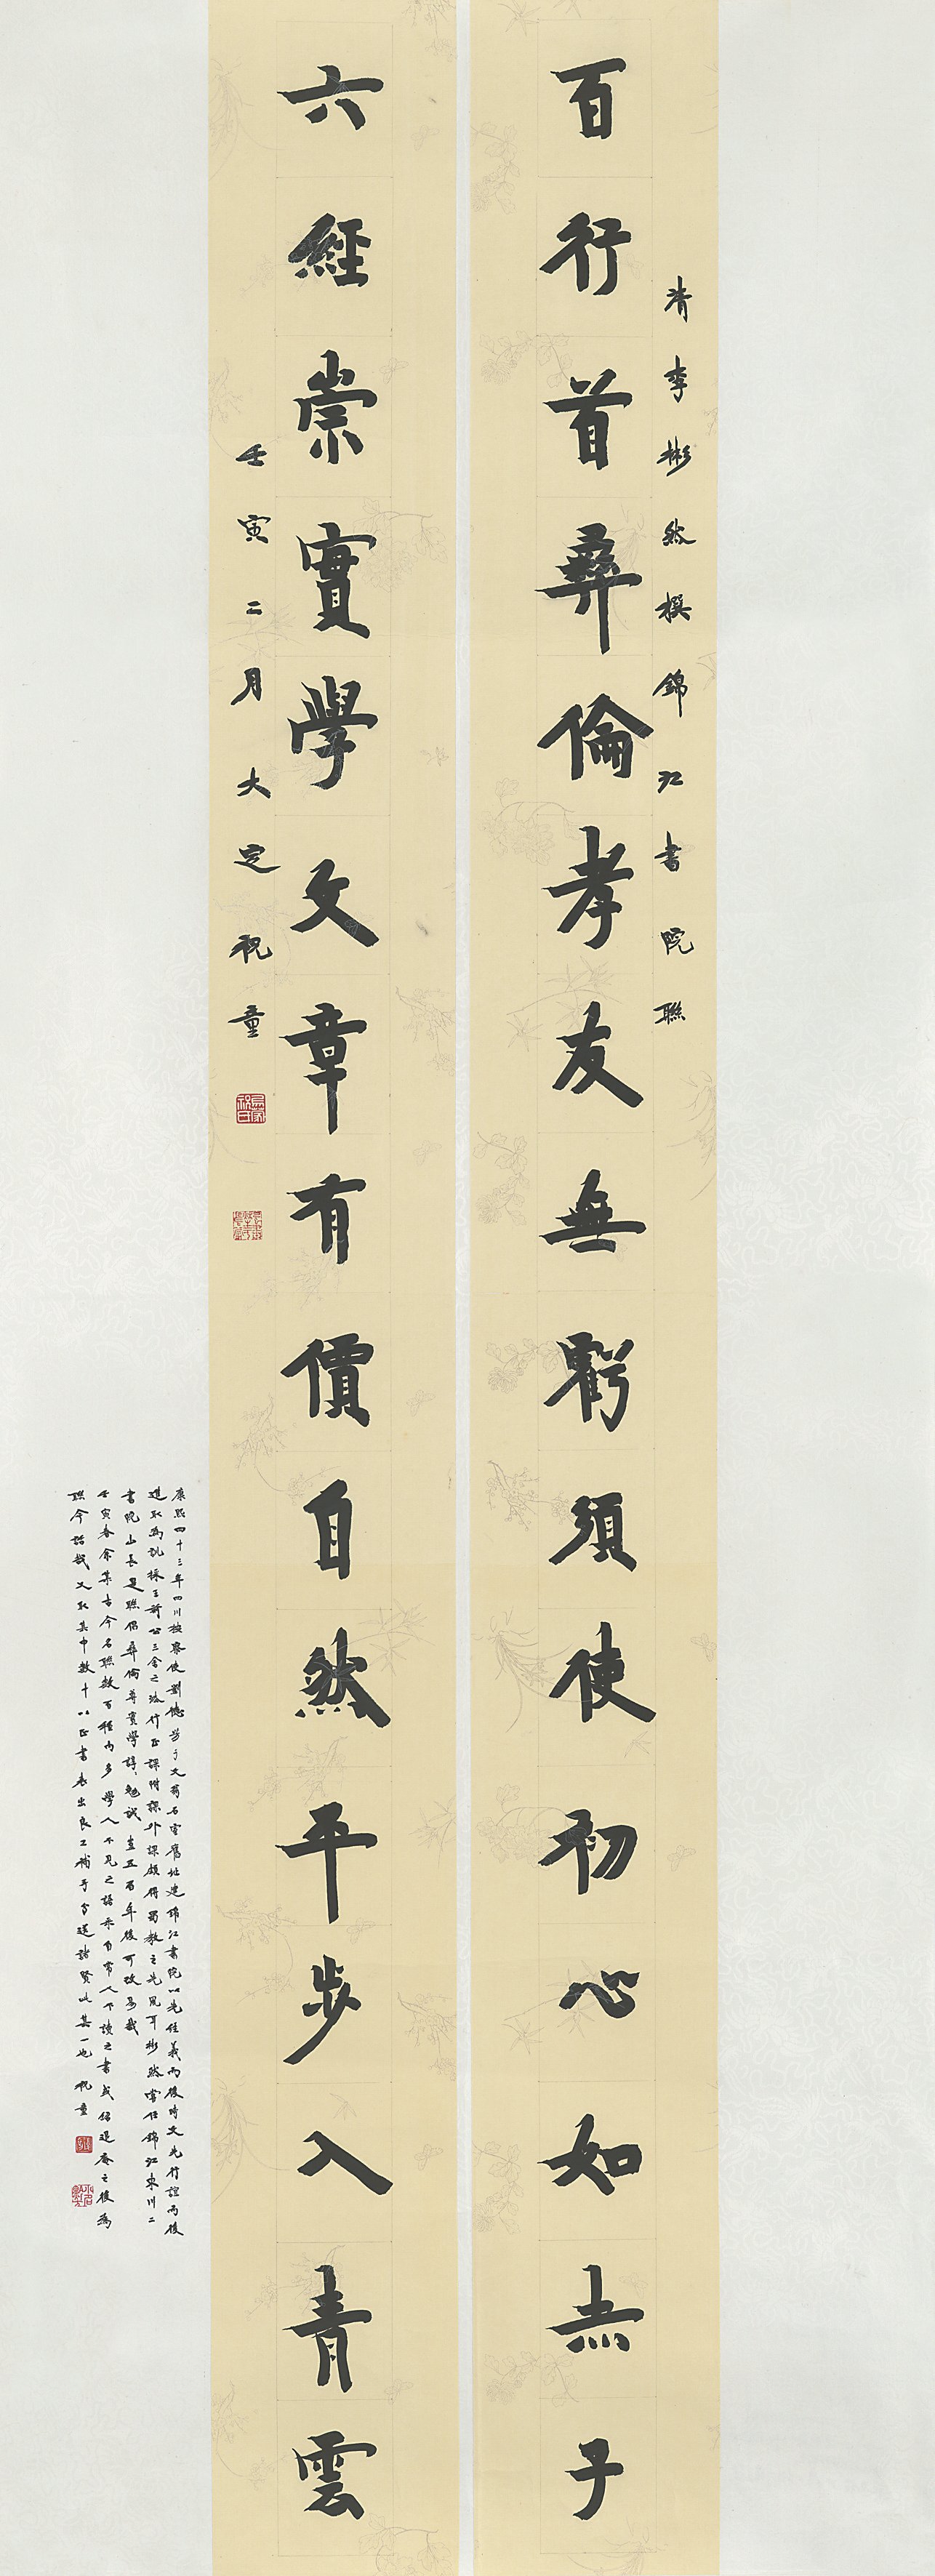 百行首彝倫孝友無虧須使初心如赤子
清李彬然撰錦江書院聯
六經崇實學文章有價自然平步入青雲
壬寅二月大定祝童
康熙四十三年四川按察使劉德芳于文翁石室舊址建錦江書院以先經義而後時文先行誼而後
進取為訓採王荊公三舍之法行正課附課外課頗得蜀教之先風耳彬然嘗任錦江東川二
書院山長是聯倡彝倫尊實學諄諄勉誡豈五百年後可改易哉
壬寅春余集古今名聯數百種內多學人不見之語亦有常人不讀之書或紹退庵之後為
聯今話哉又取其中數十以正書表出良工補手分送諸賢此其一也祝童